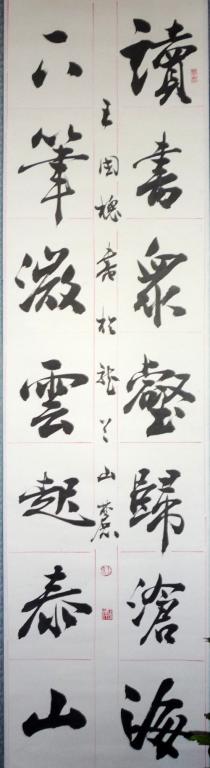 讀書眾壑歸滄海
下筆微雲起泰山
王国槐書於龍首山麓